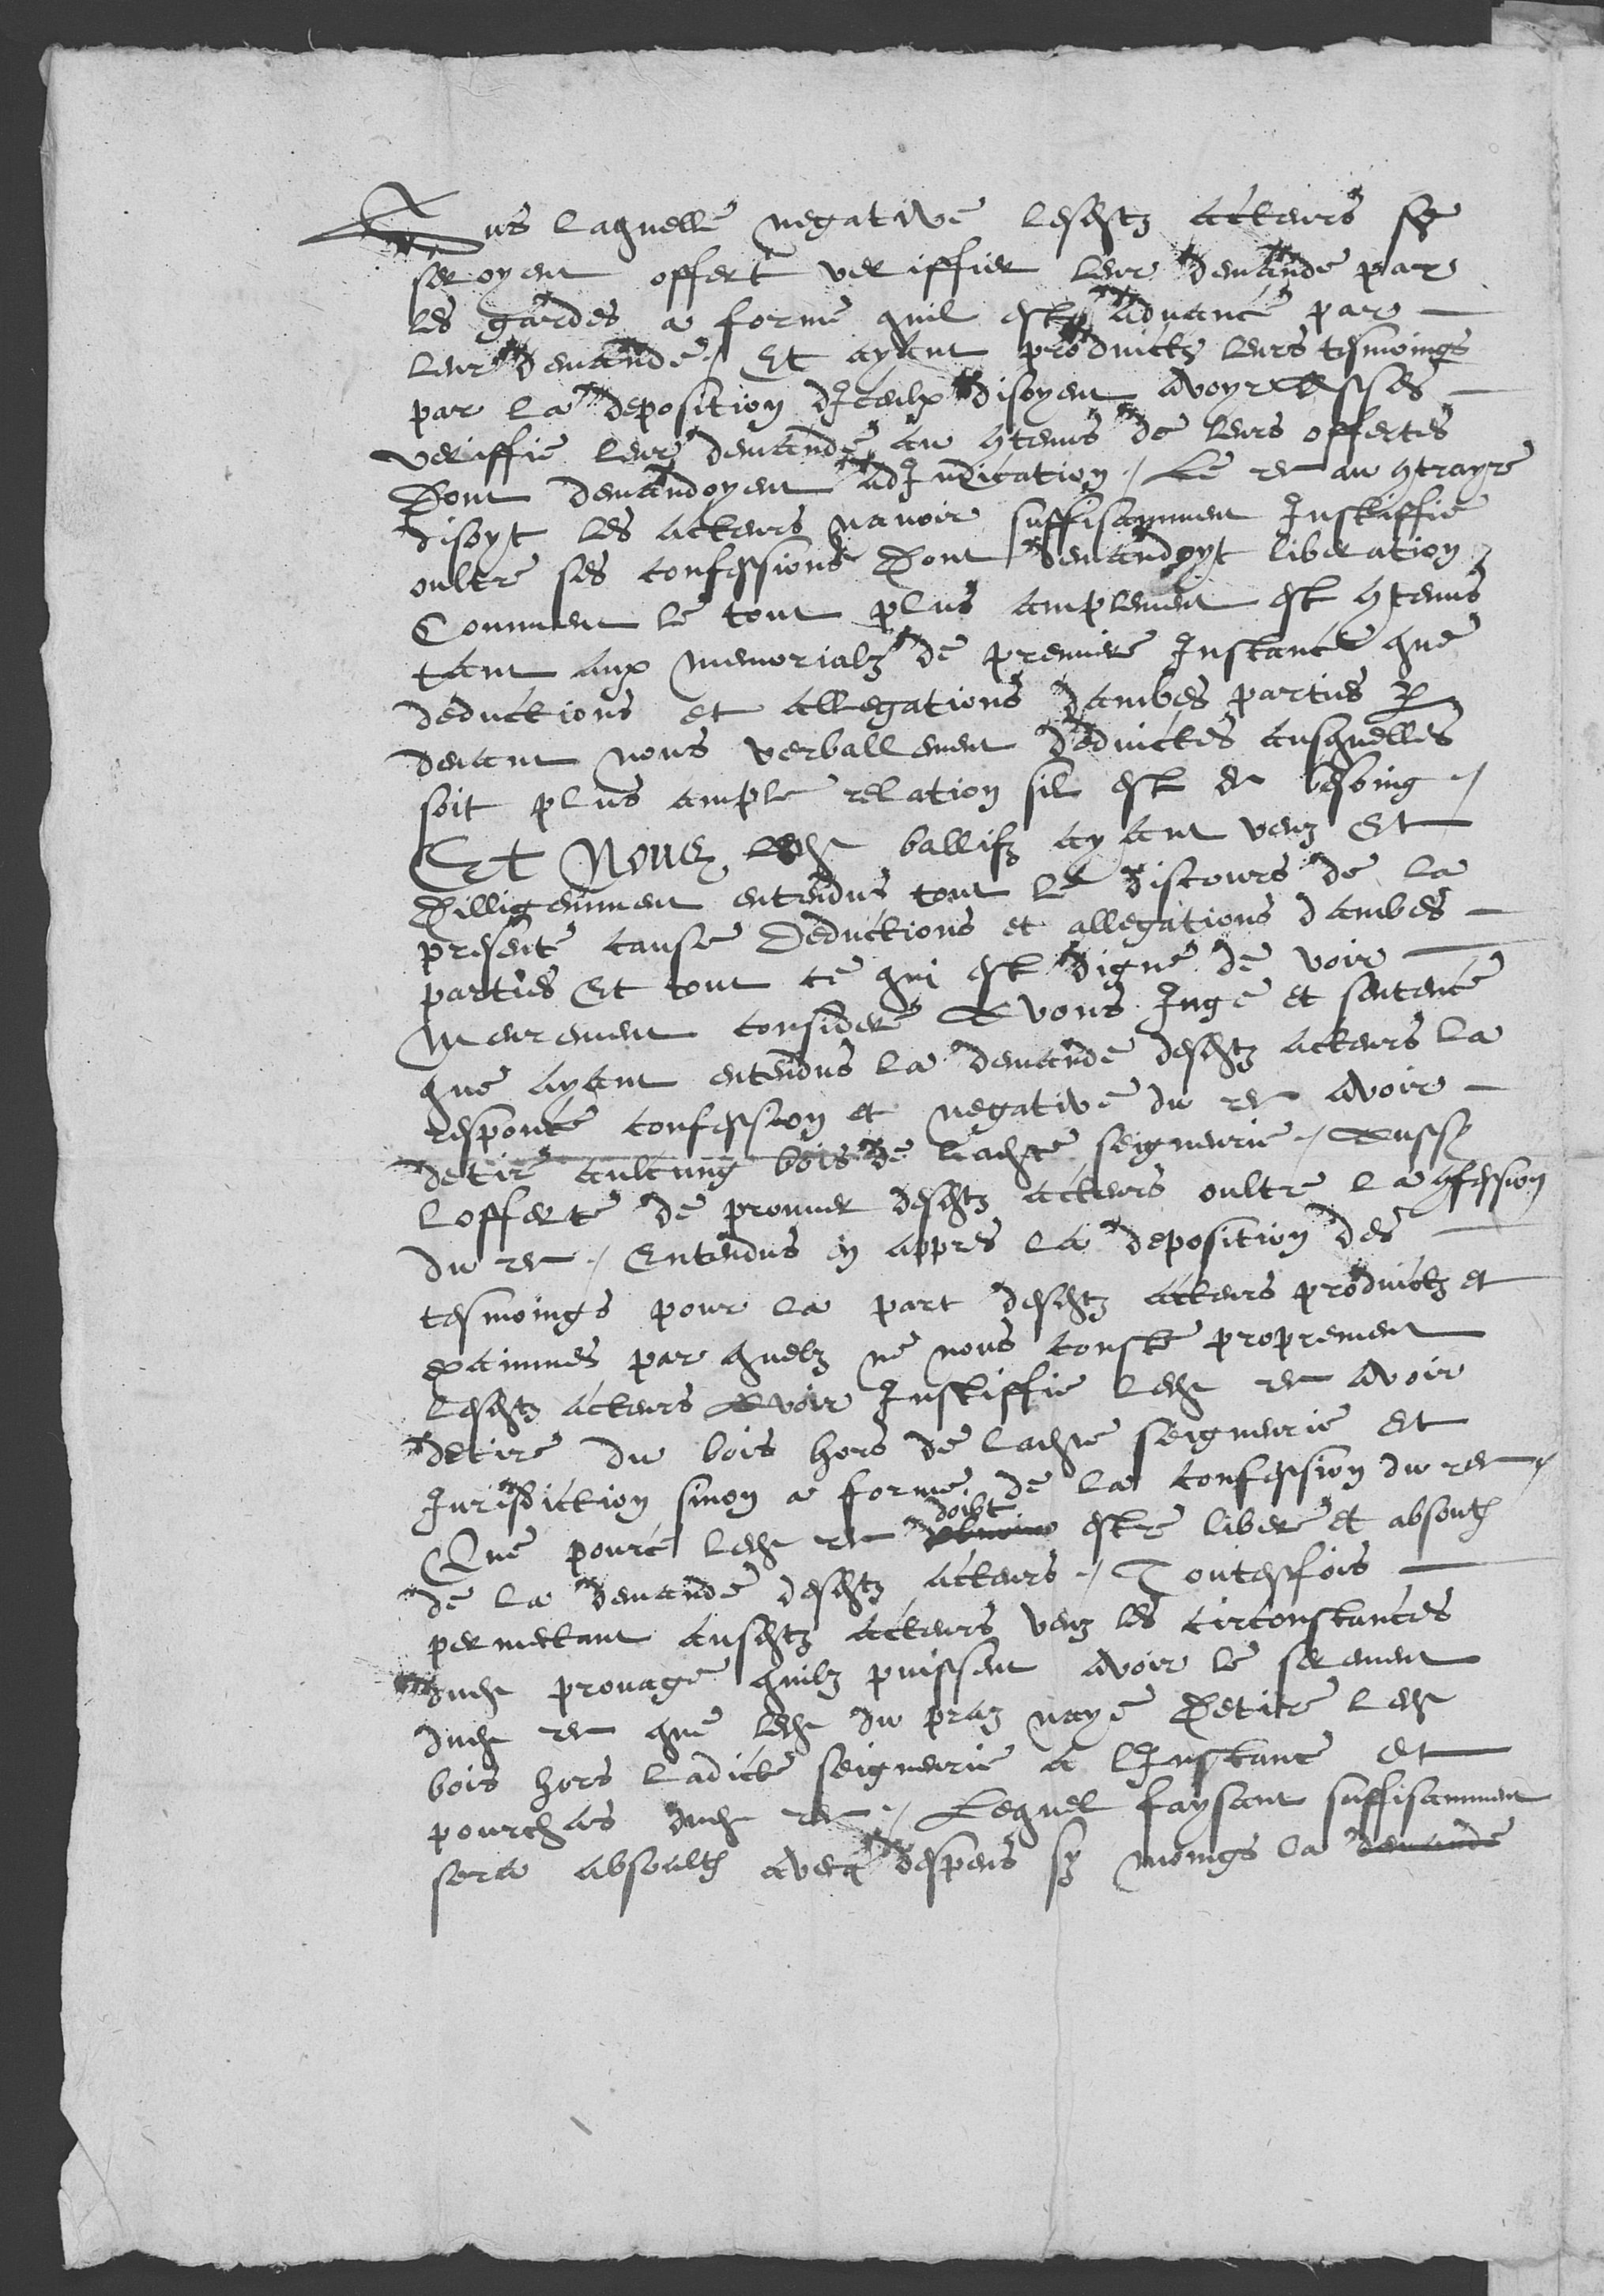 Sus laquelle negative lesditz acteurs se
seroyent offert veriffier leur demande par
les gardes a forme quil est advancé par
leur demande / Et ayant produictz leurs tesmoings
par la deposition diceulx disoyent avoyr asses
veriffie leur demande au contenus de leurs offertes
Dont demandoyent adIudication / Le reu au contrayre
disoyt les acteurs navoir suffisamment Iustiffie
oultre ses confessions Dont demandoyt liberation
Comment le tout plus amplement est contenus
tant aux memorialz de premiere Instance que
deductions et allegations dambes parties par
devant nous verballement deduictes ausquelles
soit plus ample relation sil est de besoing /
Et Nous ledit ballifz ayant veuz Et
Dilligemment entendus tout le discours de la
presente cause Deductions et allegations dambes
parties Et tout ce qui est digne de voir
Meurement consideré Avons Iugé et sentence
que ayant entendus la demande desditz acteurs la
responce confession et negative du reu avoir
detiré aulcung bois de ladite seigneurie / Aussy
lofferte de prouver desditz acteurs oultre la confession
du reu / Entendus en appres la deposition des
tesmoings pour la part desditz acteurs produictz et
examines par quelz ne nous conste proprement
lesditz acteurs Avoir Iustiffie ledit reu avoir
detire du bois hors de ladite seigneurie et
Iurisdiction sinon a forme de la confession du reu /
Que pource ledit reu doibt estre liberé et absoulz
de la demande desditz acteurs / Toutesfois
permettant ausditz acteurs veuz les circonstances
dudit provage quilz puissent avoir le serement
dudit reu que ledit du praz naye Detire ledit
bois hors ladicte seigneurie a lInstance et
pourchas dudit reu / Lequel faysant suffisamment
sera absoulz aveq despens sy moings la demande